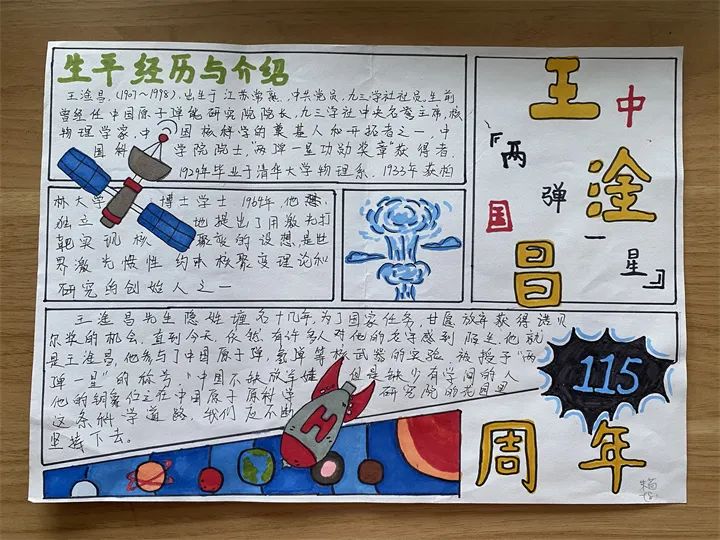 生平经历与介绍
王淦昌,(1907~1998),出生于江苏常熟,中共党员,九三学社社员,生前
曾经任中国原子弹能研究院院长,九三学社中央名誉主席,核
物理学家,中国核科学的奠基人和开拓者之一,中
国科学院院士,"两弹一星功勋奖章"获得者,
1929年毕业于清华大学物理系,1933年获柏
林大学博士学士 1964年,他
独立地提出了用激光打
靶实现核聚变的设想是世
界激光惯性约束核聚变理论和
研究的创始人之一
王淦昌先生隐姓埋名十几年,为了国家任务,甘愿放弃获得诺贝
尔学的机会,直到今天,依然有许多人对他的
是王淦昌,他参与了中国原子弹,氢弹等核武器的实验,被授予"两
弹一星"的称号,"中国不缺放羊娃,但是缺少有学问的人
他的铜像伫立在中国原子原科学研究院的花园里
这条科学道路,我们应不断
坚持下去。
王淦昌
中国
『两弹一星』
115
周年